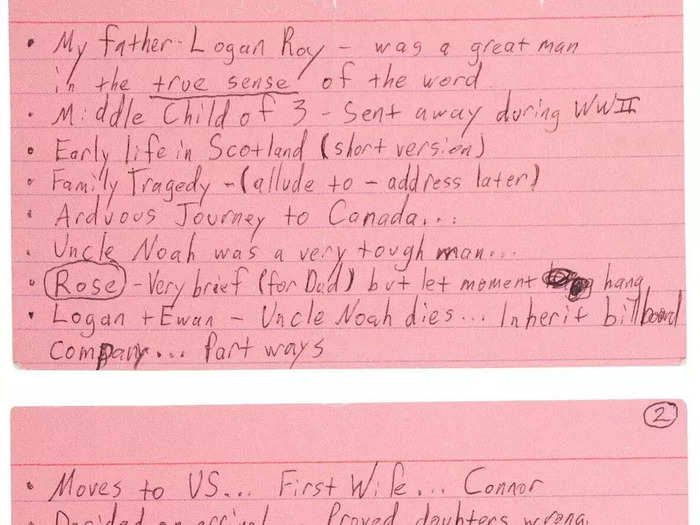 • My father - Logan Roy - was a great man
in the true sense of the word
• Middle Child of 3 - Sent away during WWII
• Early life in Scotland (short version)
• Family Tragedy - (allude to - address later)
• Arduous Journey to Canada...
• Uncle Noah was a very tough man...
• Rose - Very brief (for Dad) but let moment hang
• Logan + Ewan - Uncle Noah dies... Inherit billboard
company... Part ways
2
• Moves to US... First Wife... Connor
• Decided on arrival Proved doubters wrong